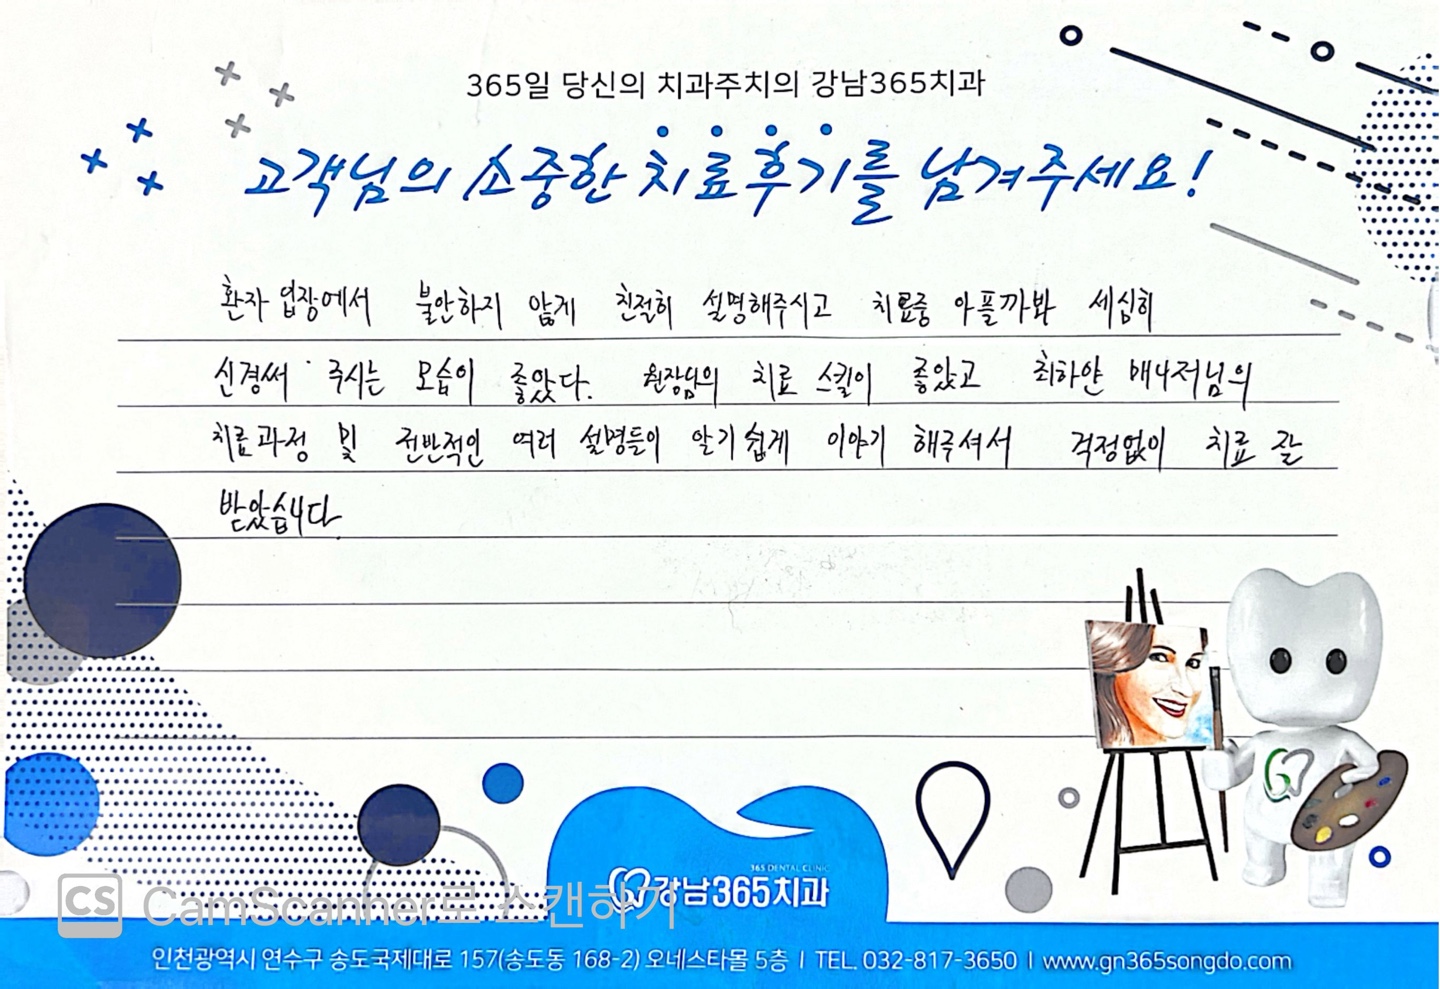 365일 당신의 치과주치의 강남365치과
고객님의 소중한 치료후기를 남겨주세요!
환자 입장에서 불안하지 않게 친절히 설명해주시고 치료중 아플까봐 세심히
신경써 주시는 모습이 좋았다. 원장님의 치료 스킬이 좋았고 최하얀 매니저님의
치료과정 및 전반적인 여러 설명들이 알기 쉽게 이야기 해주셔서 걱정없이 치료 잘
받았습니다.
365 DENTAL CLINIC
강남365치과
CS CamScanner로 스캔하기
인천광역시 연수구 송도국제대로 157(송도동 168-2) 오네스타몰 5층 | TEL. 032-817-3650 | www.gn365songdo.com